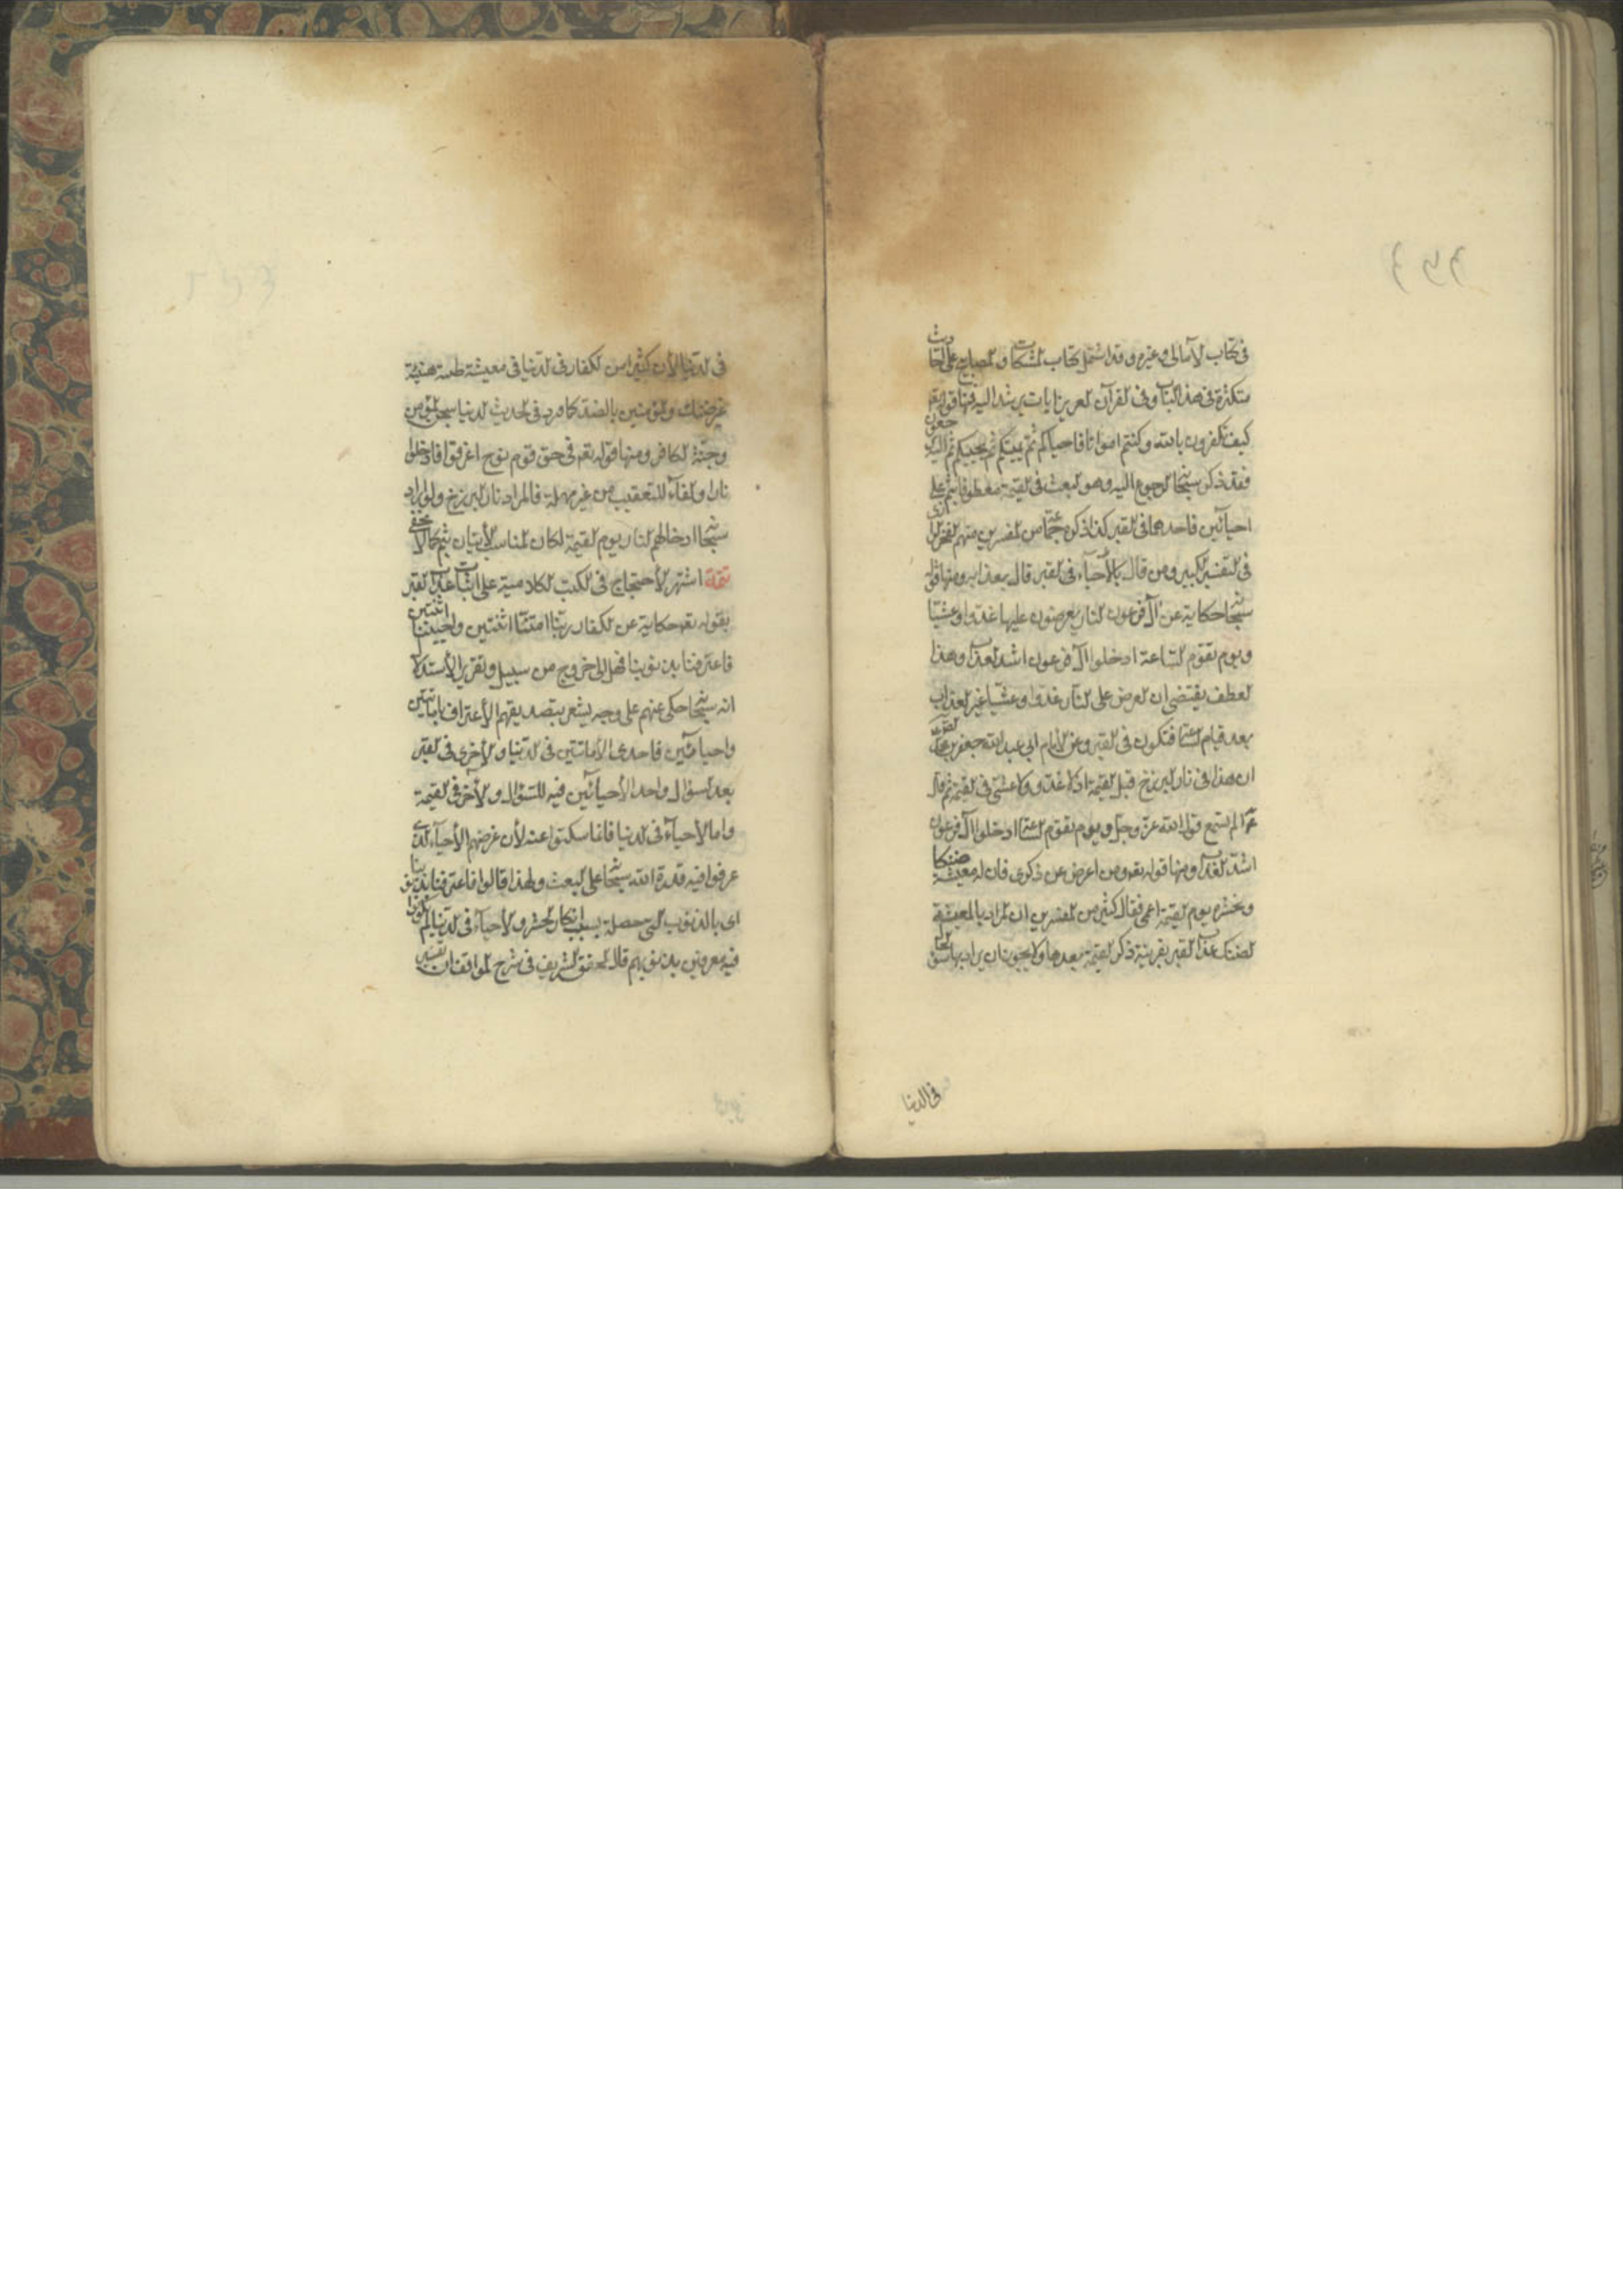 في كتاب الامالى وغيره وقد اشتمل كتاب المشكات والمصابيح على احاديث
متكثرة في هذا الباب وفي القرآن العزيز ايات يرشد اليه فمنها قوله تعه
كيف تكفرون بالله وكنتم امواتا فاحياكم ثم يميتكم ثم يحييكم ثم اليه ترجعون
فقد ذكر سبحانه الرجوع اليه وهو البعث في القيمة معطوفا بثم على
احيائين فاحدهما في القبر كذا ذكره جماعة من المفسرين منهم الفخر الرازي
في التفسير الكبير ومن قال بالأحياء في القبر قال بعذابه ومنها قوله
سبحانه حكاية عن آل فرعون النار يعرضون عليها غدوا وعشيا
ويوم تقوم الساعة ادخلوا آل فرعون اشد العذاب وهذا
العطف يقتضى ان العرض على النار غدوا وعشيا غير العذاب
بعد قيام الساعة فتكون في القبر وعن الامام ابي عبد الله جعفر بن محمد
ان هذا في نار البرزخ قبل القيمة اذ لا غدو ولا عشى في القيمة ثم قال
الم تسمع قول الله عز وجل ويوم تقوم الساعة ادخلوا آل فرعون
اشد العذاب ومنها قوله تعه ومن اعرض عن ذكرى فان له معيشة ضنكا
ونحشره يوم القيمة اعمى فقال كثير من المفسرين ان المراد بالمعيشة
الضنك عذاب القبر بقرينة ذكر القيمة بعدها ولا يجوز ان يراد بها
في الدنيا
في الدنيا لأن كثيرا من الكفار في الدنيا في معيشة طيبة هنيئة
غير ضنك والمؤمنين بالضد كما ورد في الحديث الدنيا سجن المؤمن
وجنة الكافر ومنها قوله تعه في حق قوم نوح اغرقوا فادخلوا
نارا والفاء للتعقيب من غير مهلة فالمراد نار البرزخ ولو اراد
سبحانه ادخالهم النار يوم القيمة لكان المناسب الأتيان بثم كما لا يخفى
تتمة اشتهر الأحتجاج في الكتب الكلامية على اثبات عذاب القبر
بقوله تعه حكاية عن الكفار ربنا امتنا اثنتين واحييتنا اثنتين
فاعترفنا بذنوبنا فهل الى خروج من سبيل وتقرير الأستدلال
انه سبحانه حكى عنهم على وجه يشعر بتصديقهم الأعتراف باماتتين
واحيائين فاحدى الاماتتين في الدنيا والأخرى في القبر
بعد السؤال واحد الأحيائين فيه للسؤال والأخر في القيمة
واما الأحياء في الدنيا فانما سكتوا عنه لأن غرضهم الأحياء الذى
عرفوا فيه قدرة الله سبحانه على البعث ولهذا قالوا فاعترفنا بذنوبنا
اى بالذنوب التى حصلت بسبب انكار الحشر والأحياء في الدنيا لم يكونوا
فيه معرفين بذنوبهم قال المحقق الشريف في شرح المواقف ان تفسير